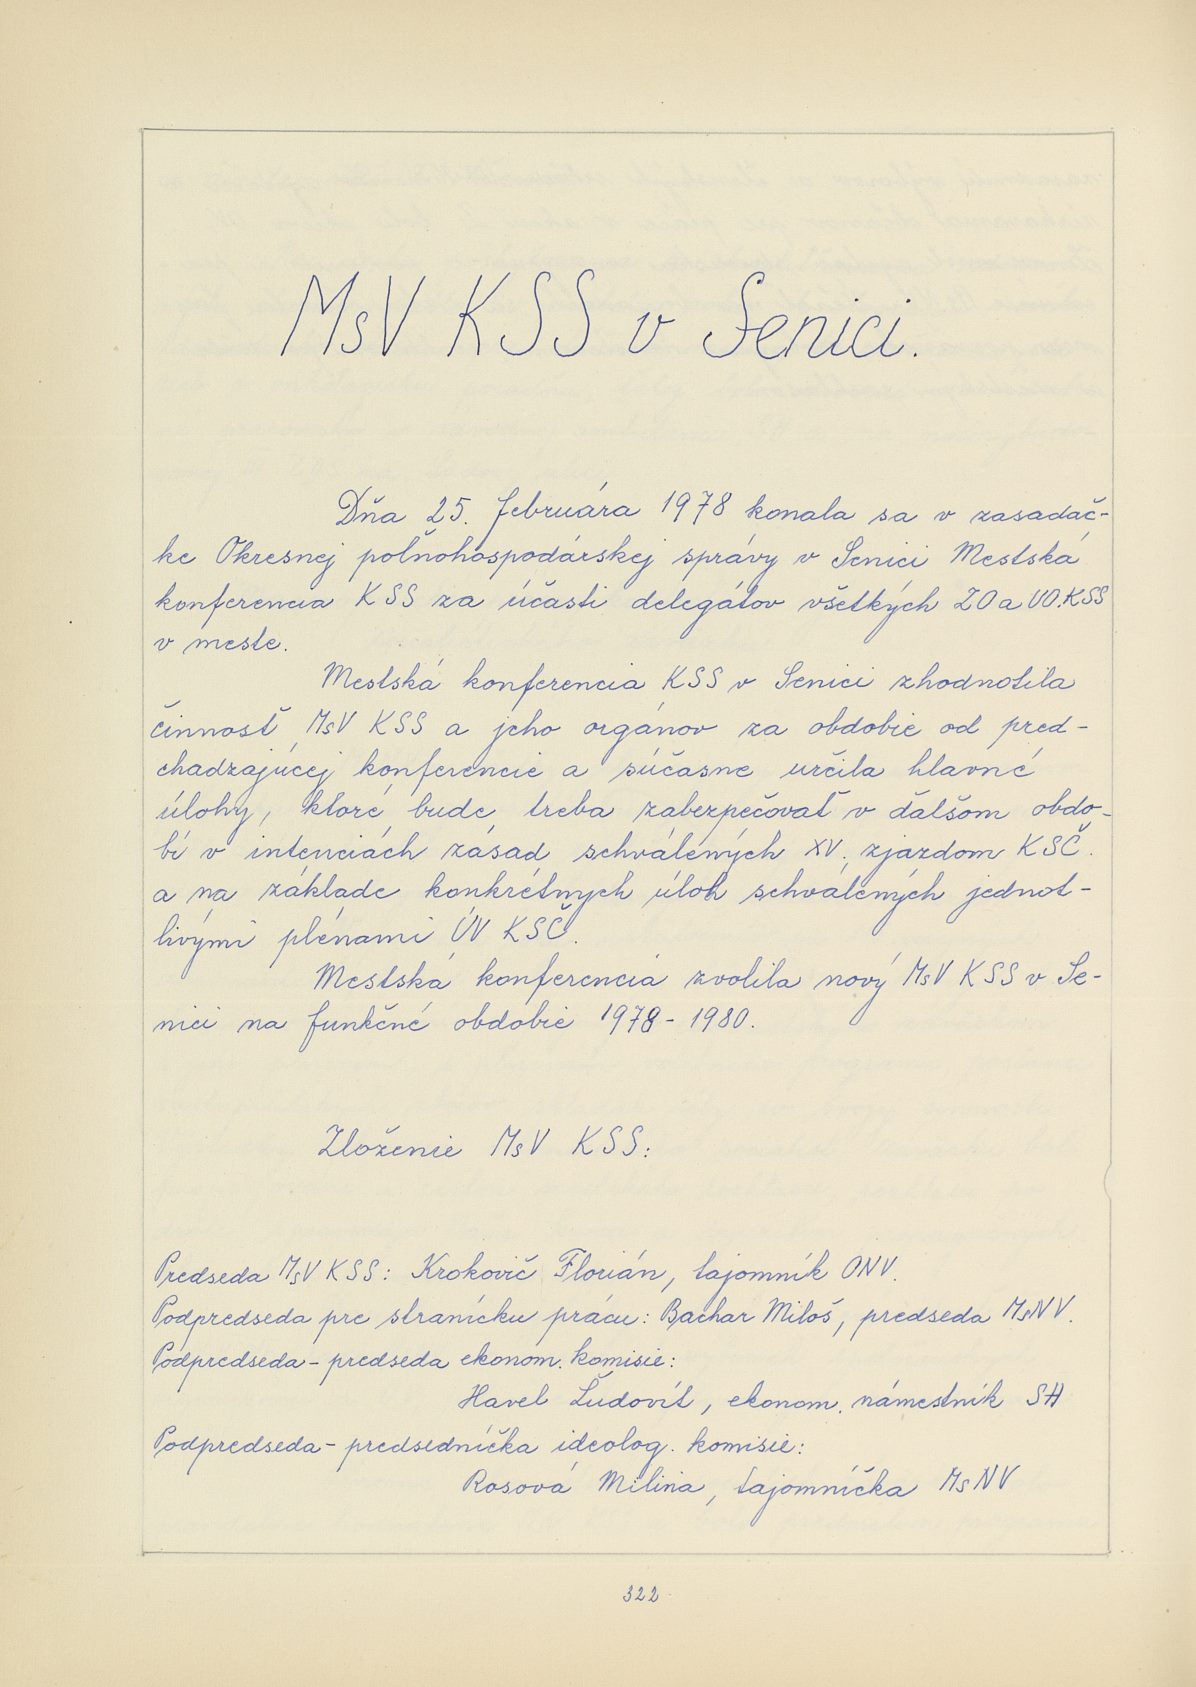 MsV KSS v Senici.
Dňa 25. februára 1978 konala sa v zasadač-
ke Okresnej poľnohospodárskej správy v Senici Mestská
konferencia KSS za účasti delegátov všetkých ZO a VO KSS
v meste.
Mestská konferencia KSS v Senici zhodnotila
činnosť MsV KSS a jeho orgánov za obdobie od pred-
chadzajúcej konferencie a súčasne určila hlavné
úlohy, ktoré bude treba zabezpečovať v ďalšom obdo-
bí v intenciách zásad schválených XV. zjazdom KSČ.
a na základe konkrétnych úloh schválených jednot-
livými plénami ÚV KSČ.
Mestská konferencia zvolila nový MsV KSS v Se-
nici na funkčné obdobie 1978 - 1980.
Zloženie MsV KSS:
Predseda MsV KSS: Krokovič Florián, tajomník ONV.
Podpredseda pre stranícku prácu: Bachar Miloš, predseda MsNV.
Podpredseda - predseda ekonom. komisie:
Havel Ľudovít, ekonom. námestník SH
Podpredseda - predsedníčka ideolog. komisie:
Rosová Milina, tajomníčka MsNV
322